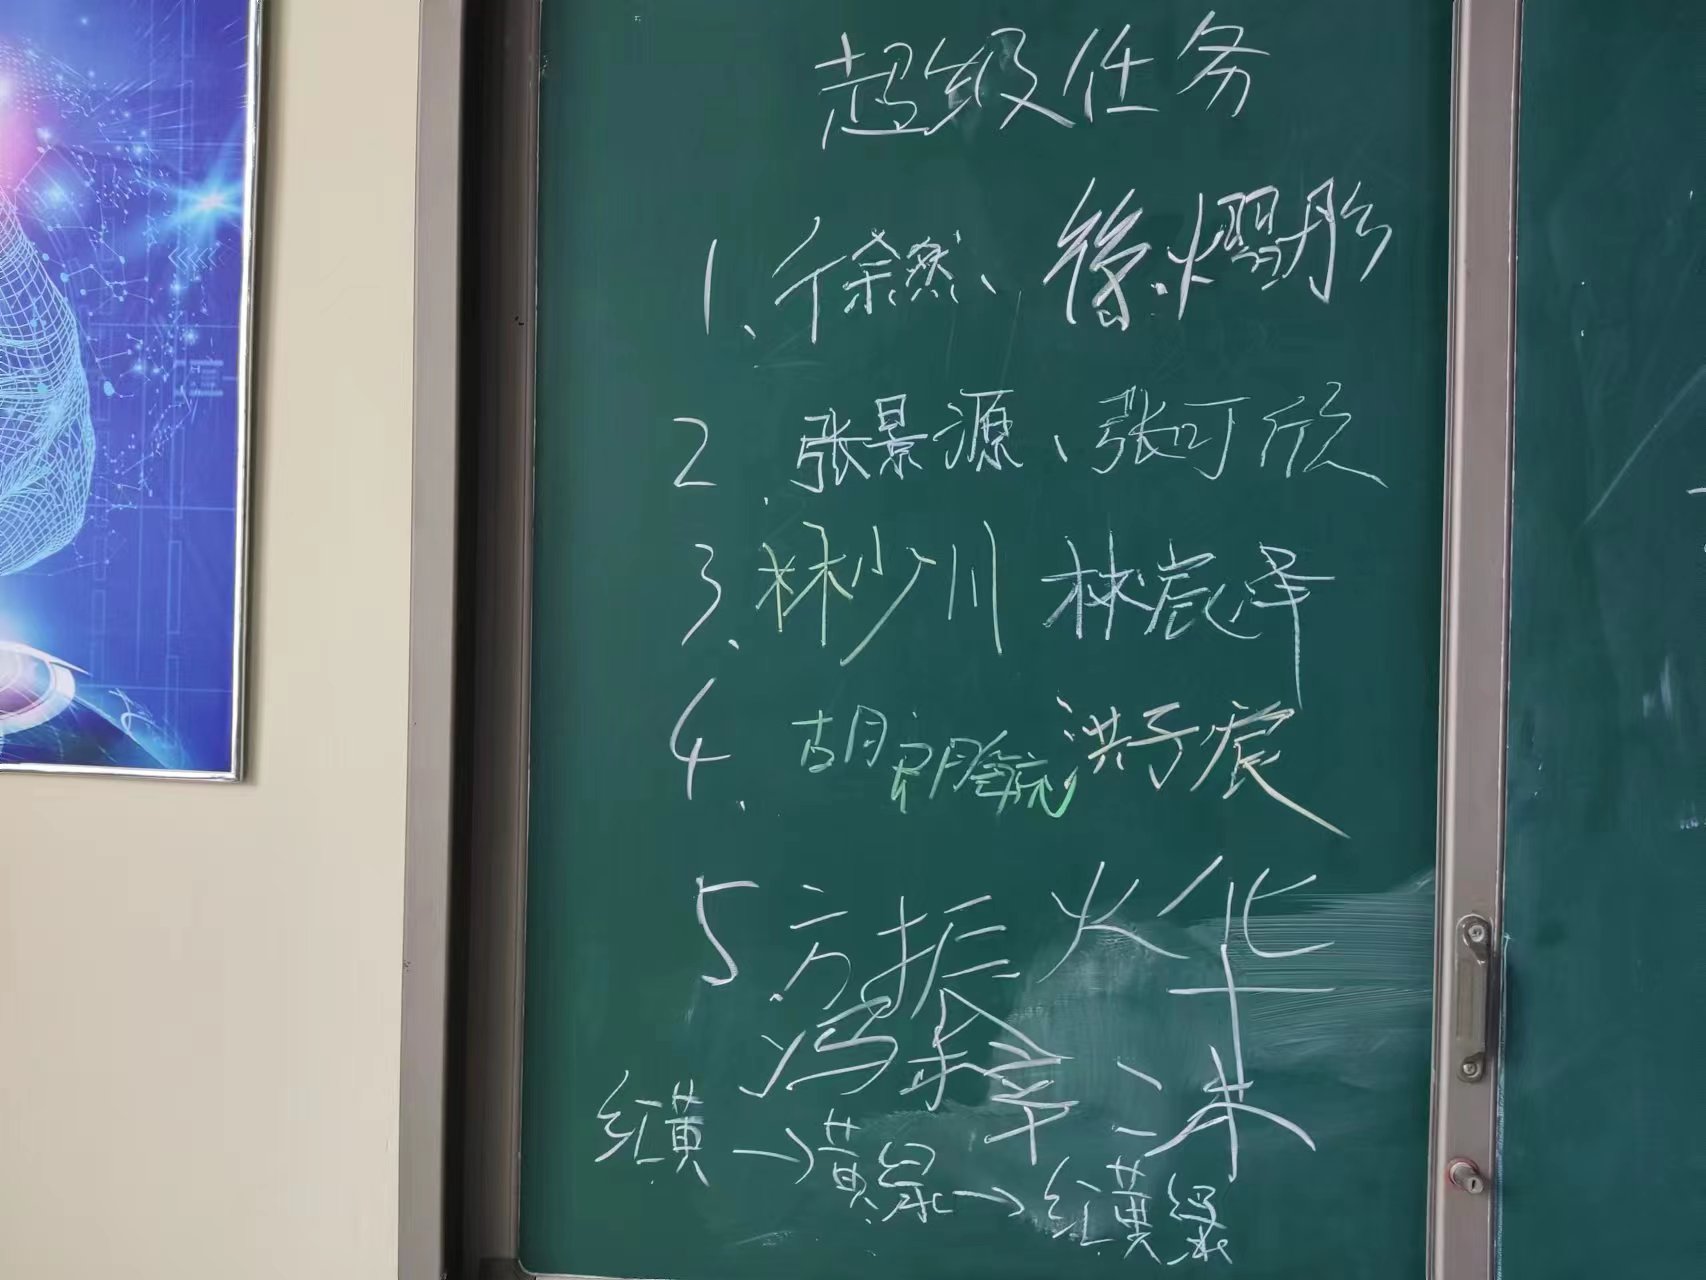 超级任务
1、徐然、徐熠彤
2、张景源、张可欣
3、林少川 林宸泽
4、胡 洪子宸
5、方振火华
冯余幸 沫
红黄→黄绿→红黄绿